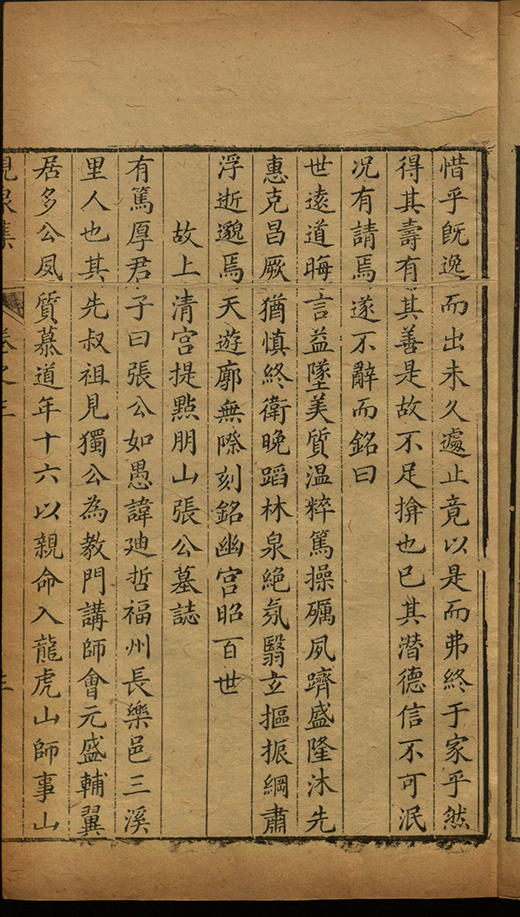 惜乎旣逸而出未久處止竟以是而弗終于家乎然
得其壽有其善是故不足揜也已其潛德信不可泯
况有請焉遂不辭而銘曰
世遠道晦言益墜美質温粹篤操礪夙躋盛隆沐先
惠克昌厥猶慎終衛晚蹈林泉絶氛翳立摳振綱肅
浮逝邈焉天遊廓無際刻銘幽宫昭百世
故上清宫提點朋山張公墓誌
有篤厚君子曰張公如愚諱廸哲福州長樂邑三溪
里人也其先叔祖見獨公為教門講師會元盛輔翼
居多公夙質慕道年十六以親命入龍虎山師事山
峴泉集 卷之三